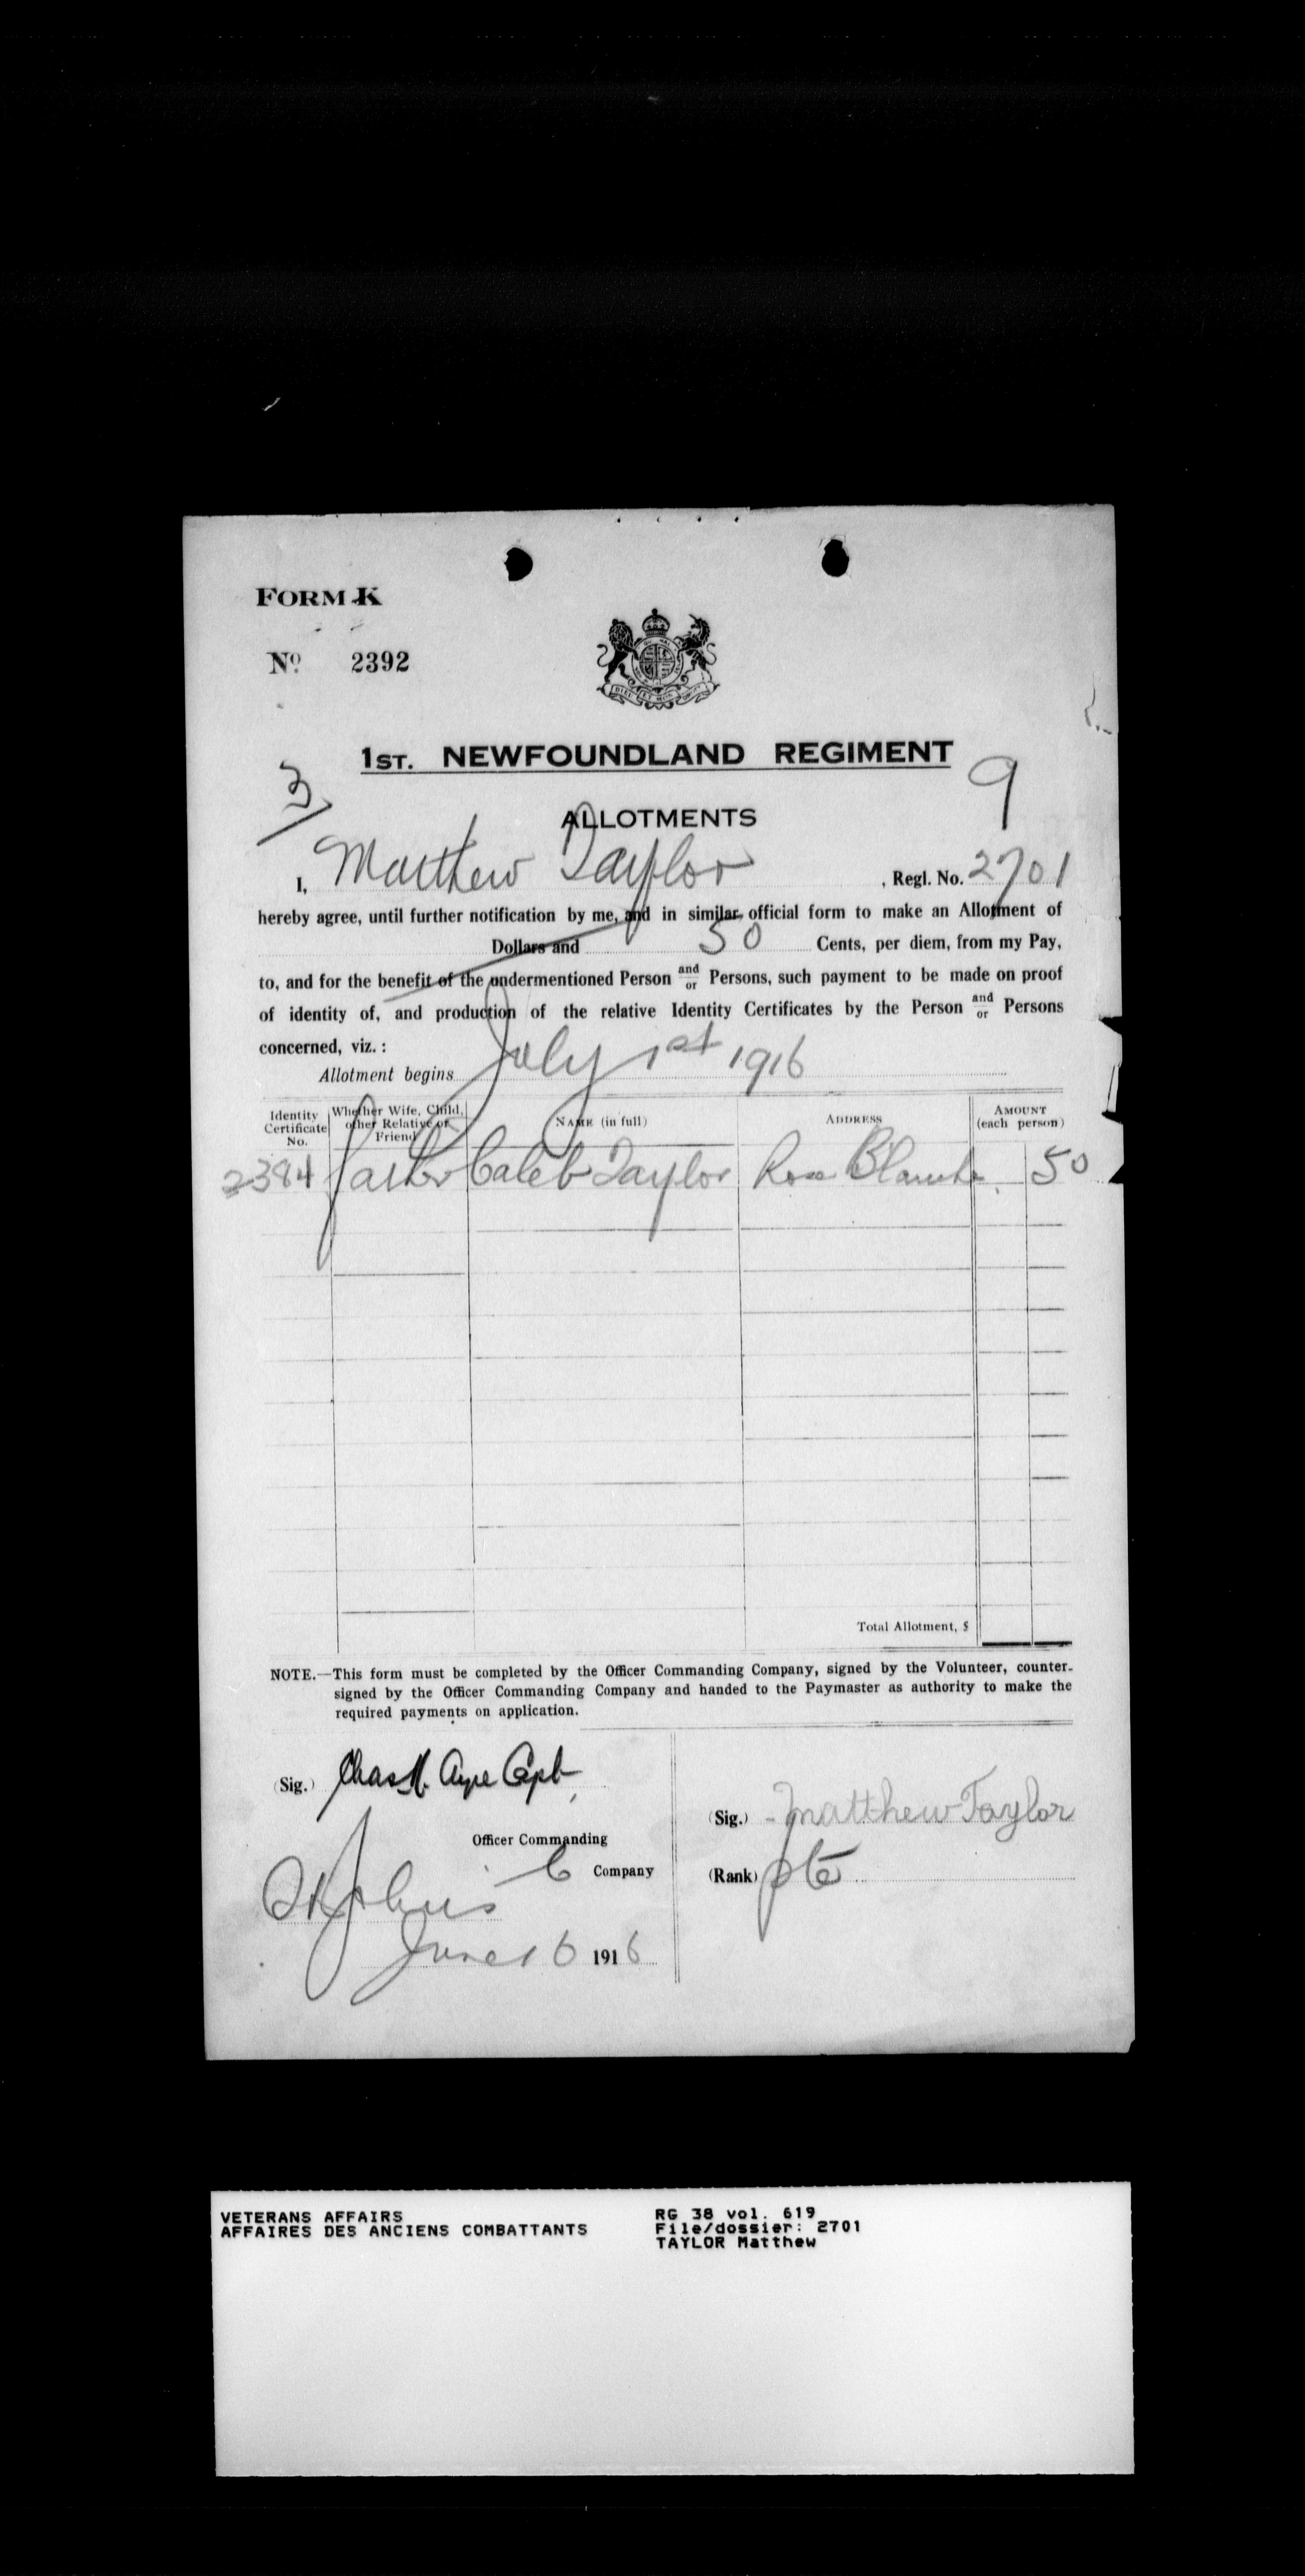 FORM K
No. 2392
1ST. NEWFOUNDLAND REGIMENT
3/
9
ALLOTMENTS
I, Matthew Taylor, Regl. No. 2701
hereby agree, until further notification by me, and in similar official form to make an Allotment of
Dollars and 50 Cents, per diem, from my Pay,
to, and for the benefit of the undermentioned Person and/or Persons, such payment to be made on proof
of identity of, and production of the relative Identity Certificates by the Person and/or Persons
concerned, viz.:
Allotment begins July 1st 1916
Identity Certificate No. Whether Wife, Child, other Relative or Friend NAME (in full) ADDRESS AMOUNT (each person)
2384 Father Caleb Taylor Rose Blanche 50
Total Allotment, $
NOTE.—This form must be completed by the Officer Commanding Company, signed by the Volunteer, counter-
signed by the Officer Commanding Company and handed to the Paymaster as authority to make the
required payments on application.
(Sig.) Chas. Ayre Capt
Officer Commanding
C Company
St Johns
June 16 1916
(Sig.) Matthew Taylor
(Rank) pte
VETERANS AFFAIRS
AFFAIRES DES ANCIENS COMBATTANTS
RG 38 vol. 619
File/dossier: 2701
TAYLOR Matthew